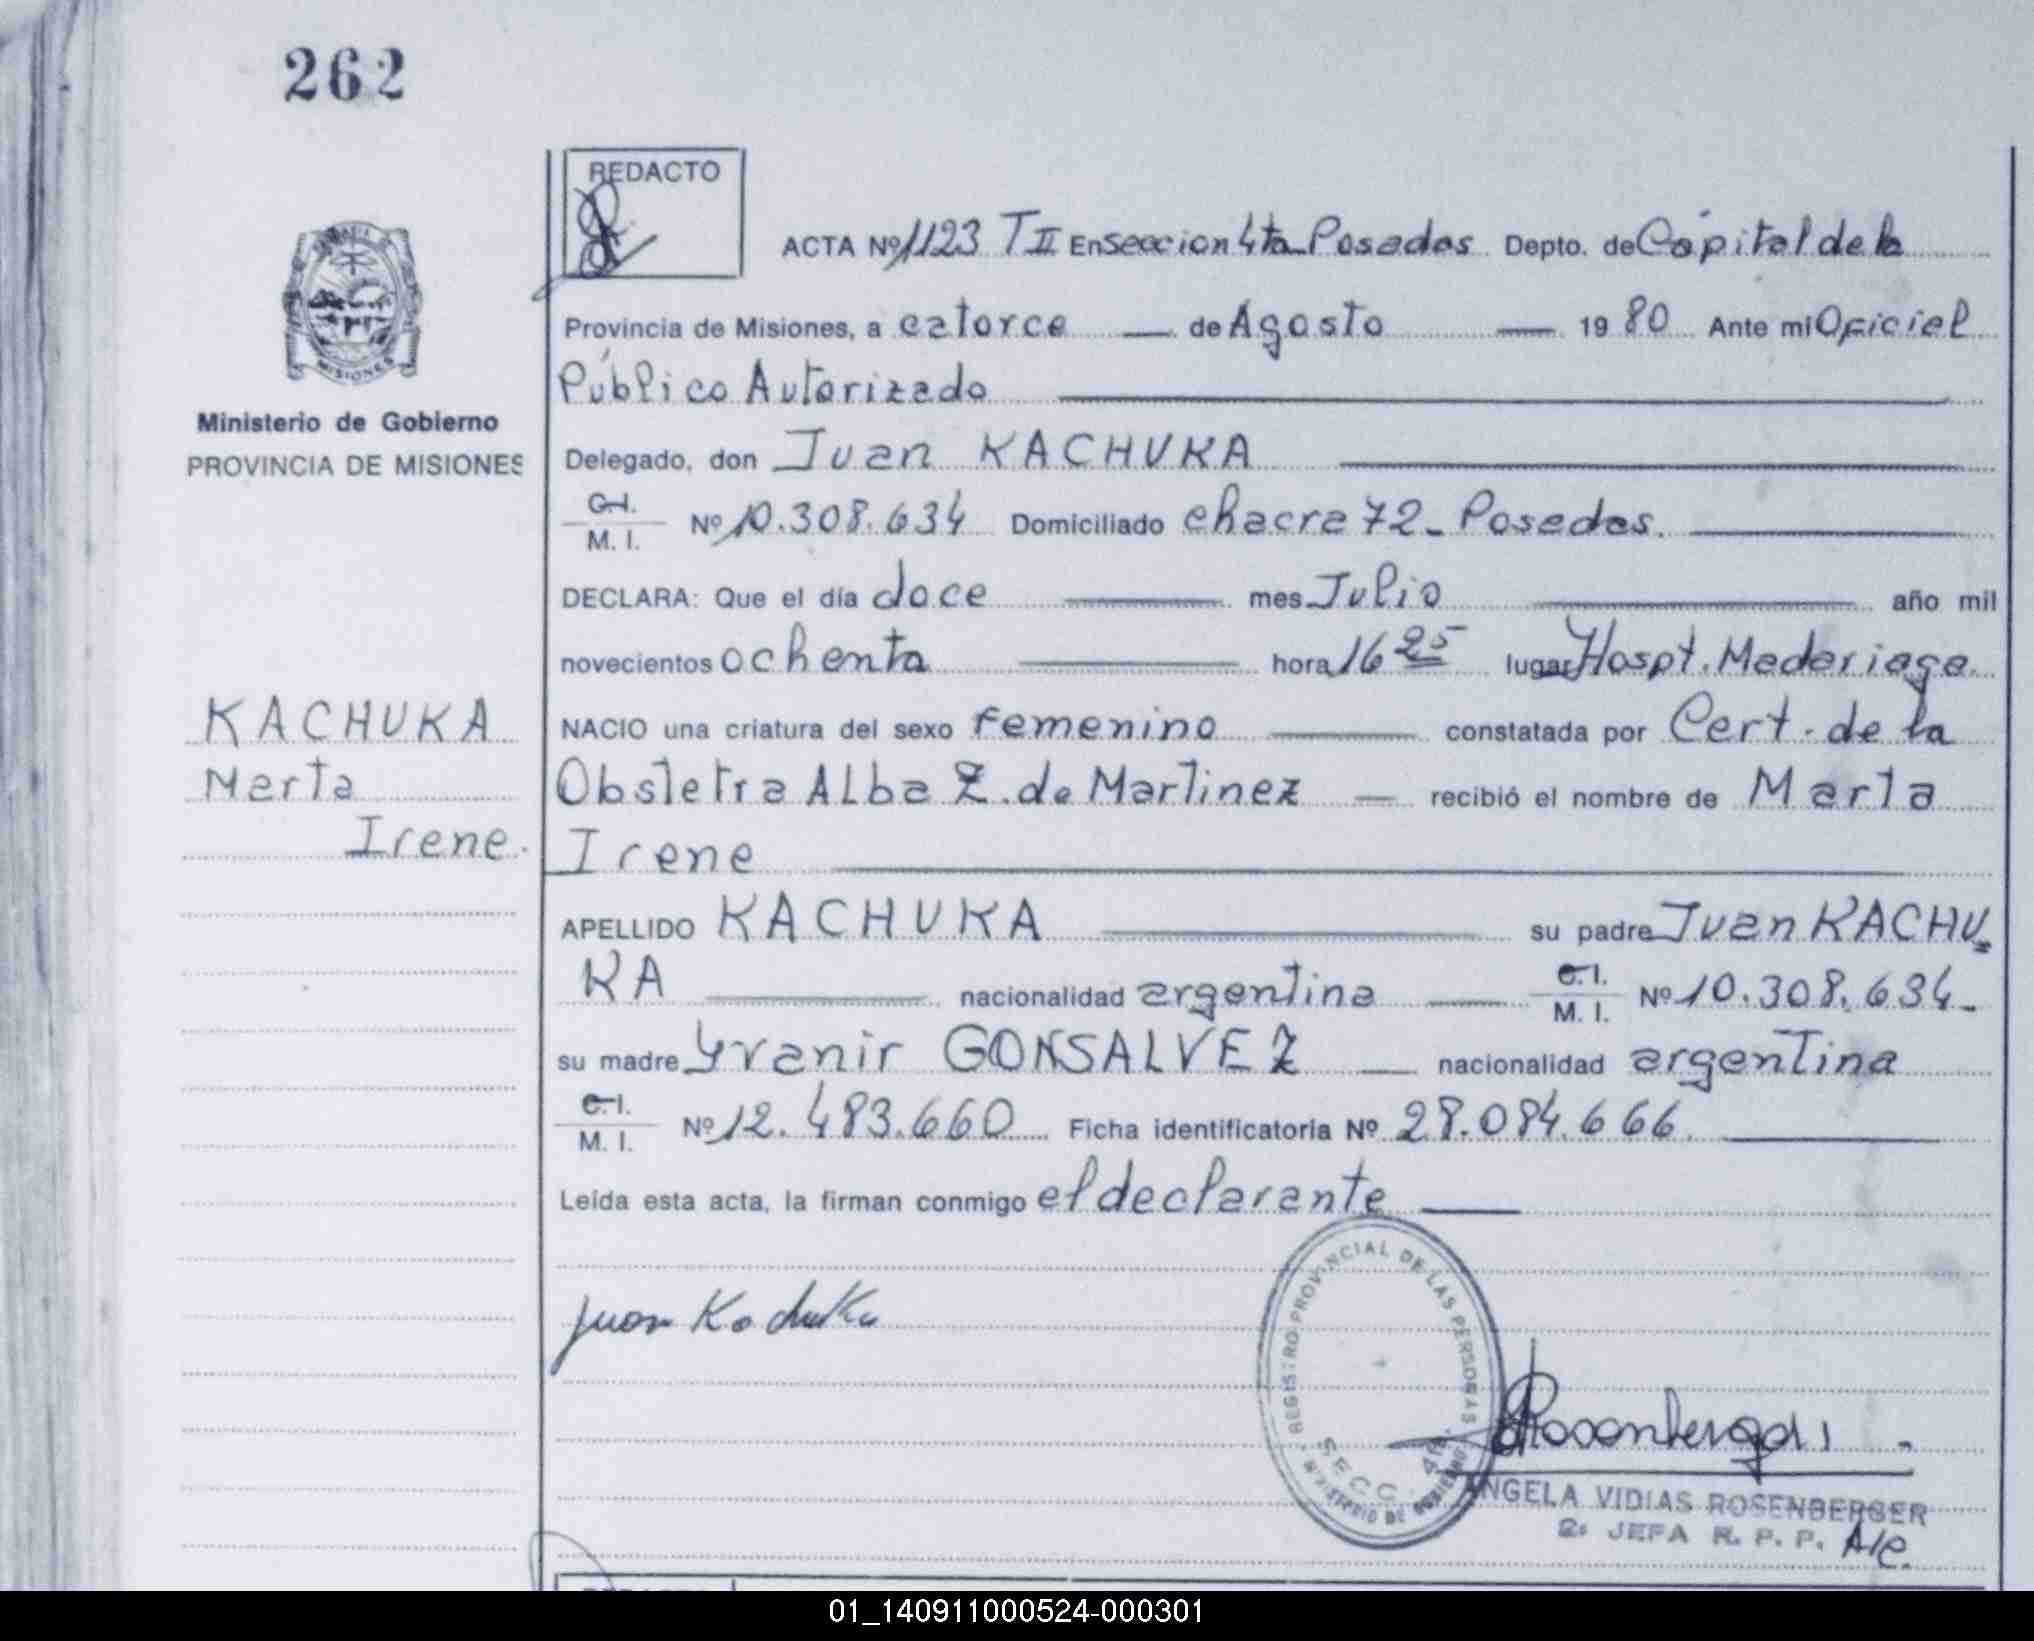 262
REDACTO
ACTA Nº 1123 T II En seccion 4ta Posadas Depto. de Capital de la
Provincia de Misiones, a catorce — de Agosto — 19 80 Ante mi Oficial
Público Autorizado
Ministerio de Gobierno
PROVINCIA DE MISIONES
Delegado, don Juan KACHUKA
C.I. M. I. Nº 10.308.634 Domiciliado chacra 72 - Posadas.
DECLARA: Que el día doce mes Julio año mil
novecientos ochenta hora 16 25 lugar Hospt. Madariaga.
KACHUKA
Marta
Irene.
NACIO una criatura del sexo femenino constatada por Cert. de la
Obstetra Alba Z. de Martinez — recibió el nombre de Marta
Irene
APELLIDO KACHUKA su padre Juan KACHU=
KA nacionalidad argentina C.I. M. I. Nº 10.308.634-
su madre Yvanir GONSALVEZ — nacionalidad argentina
C.I. M. I. Nº 12.483.660 Ficha identificatoria Nº 28.084.666.
Leída esta acta, la firman conmigo el declarante
Juan Kachuka
REGISTRO PROVINCIAL DE LAS PERSONAS
SECC. 4a.
MINISTERIO DE GOBIERNO
ANGELA VIDIAS ROSENBERGER
2º JEFA R. P. P. A/C.
REDACTO
01_140911000524-000301